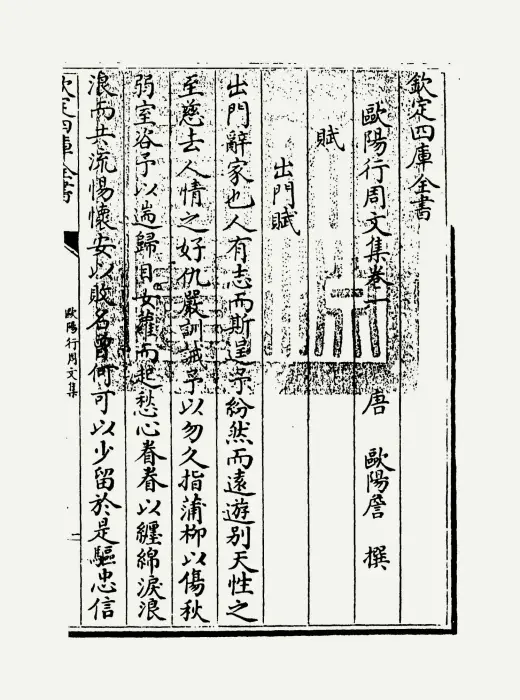 欽定四庫全書
歐陽行周文集卷一
唐 歐陽詹 撰
賦
出門賦
出門辭家也人有志而斯逞予紛然而遠遊別天性之
至慈去人情之好仇嚴訓誡予以勿久指蒲柳以傷秋
弱室咨予以遄歸目女蘿而起愁心眷眷以纏綿淚浪
浪而共流惕懷安以敗名曾何可以少留於是驅忠信
欽定四庫全書
歐陽行周文集